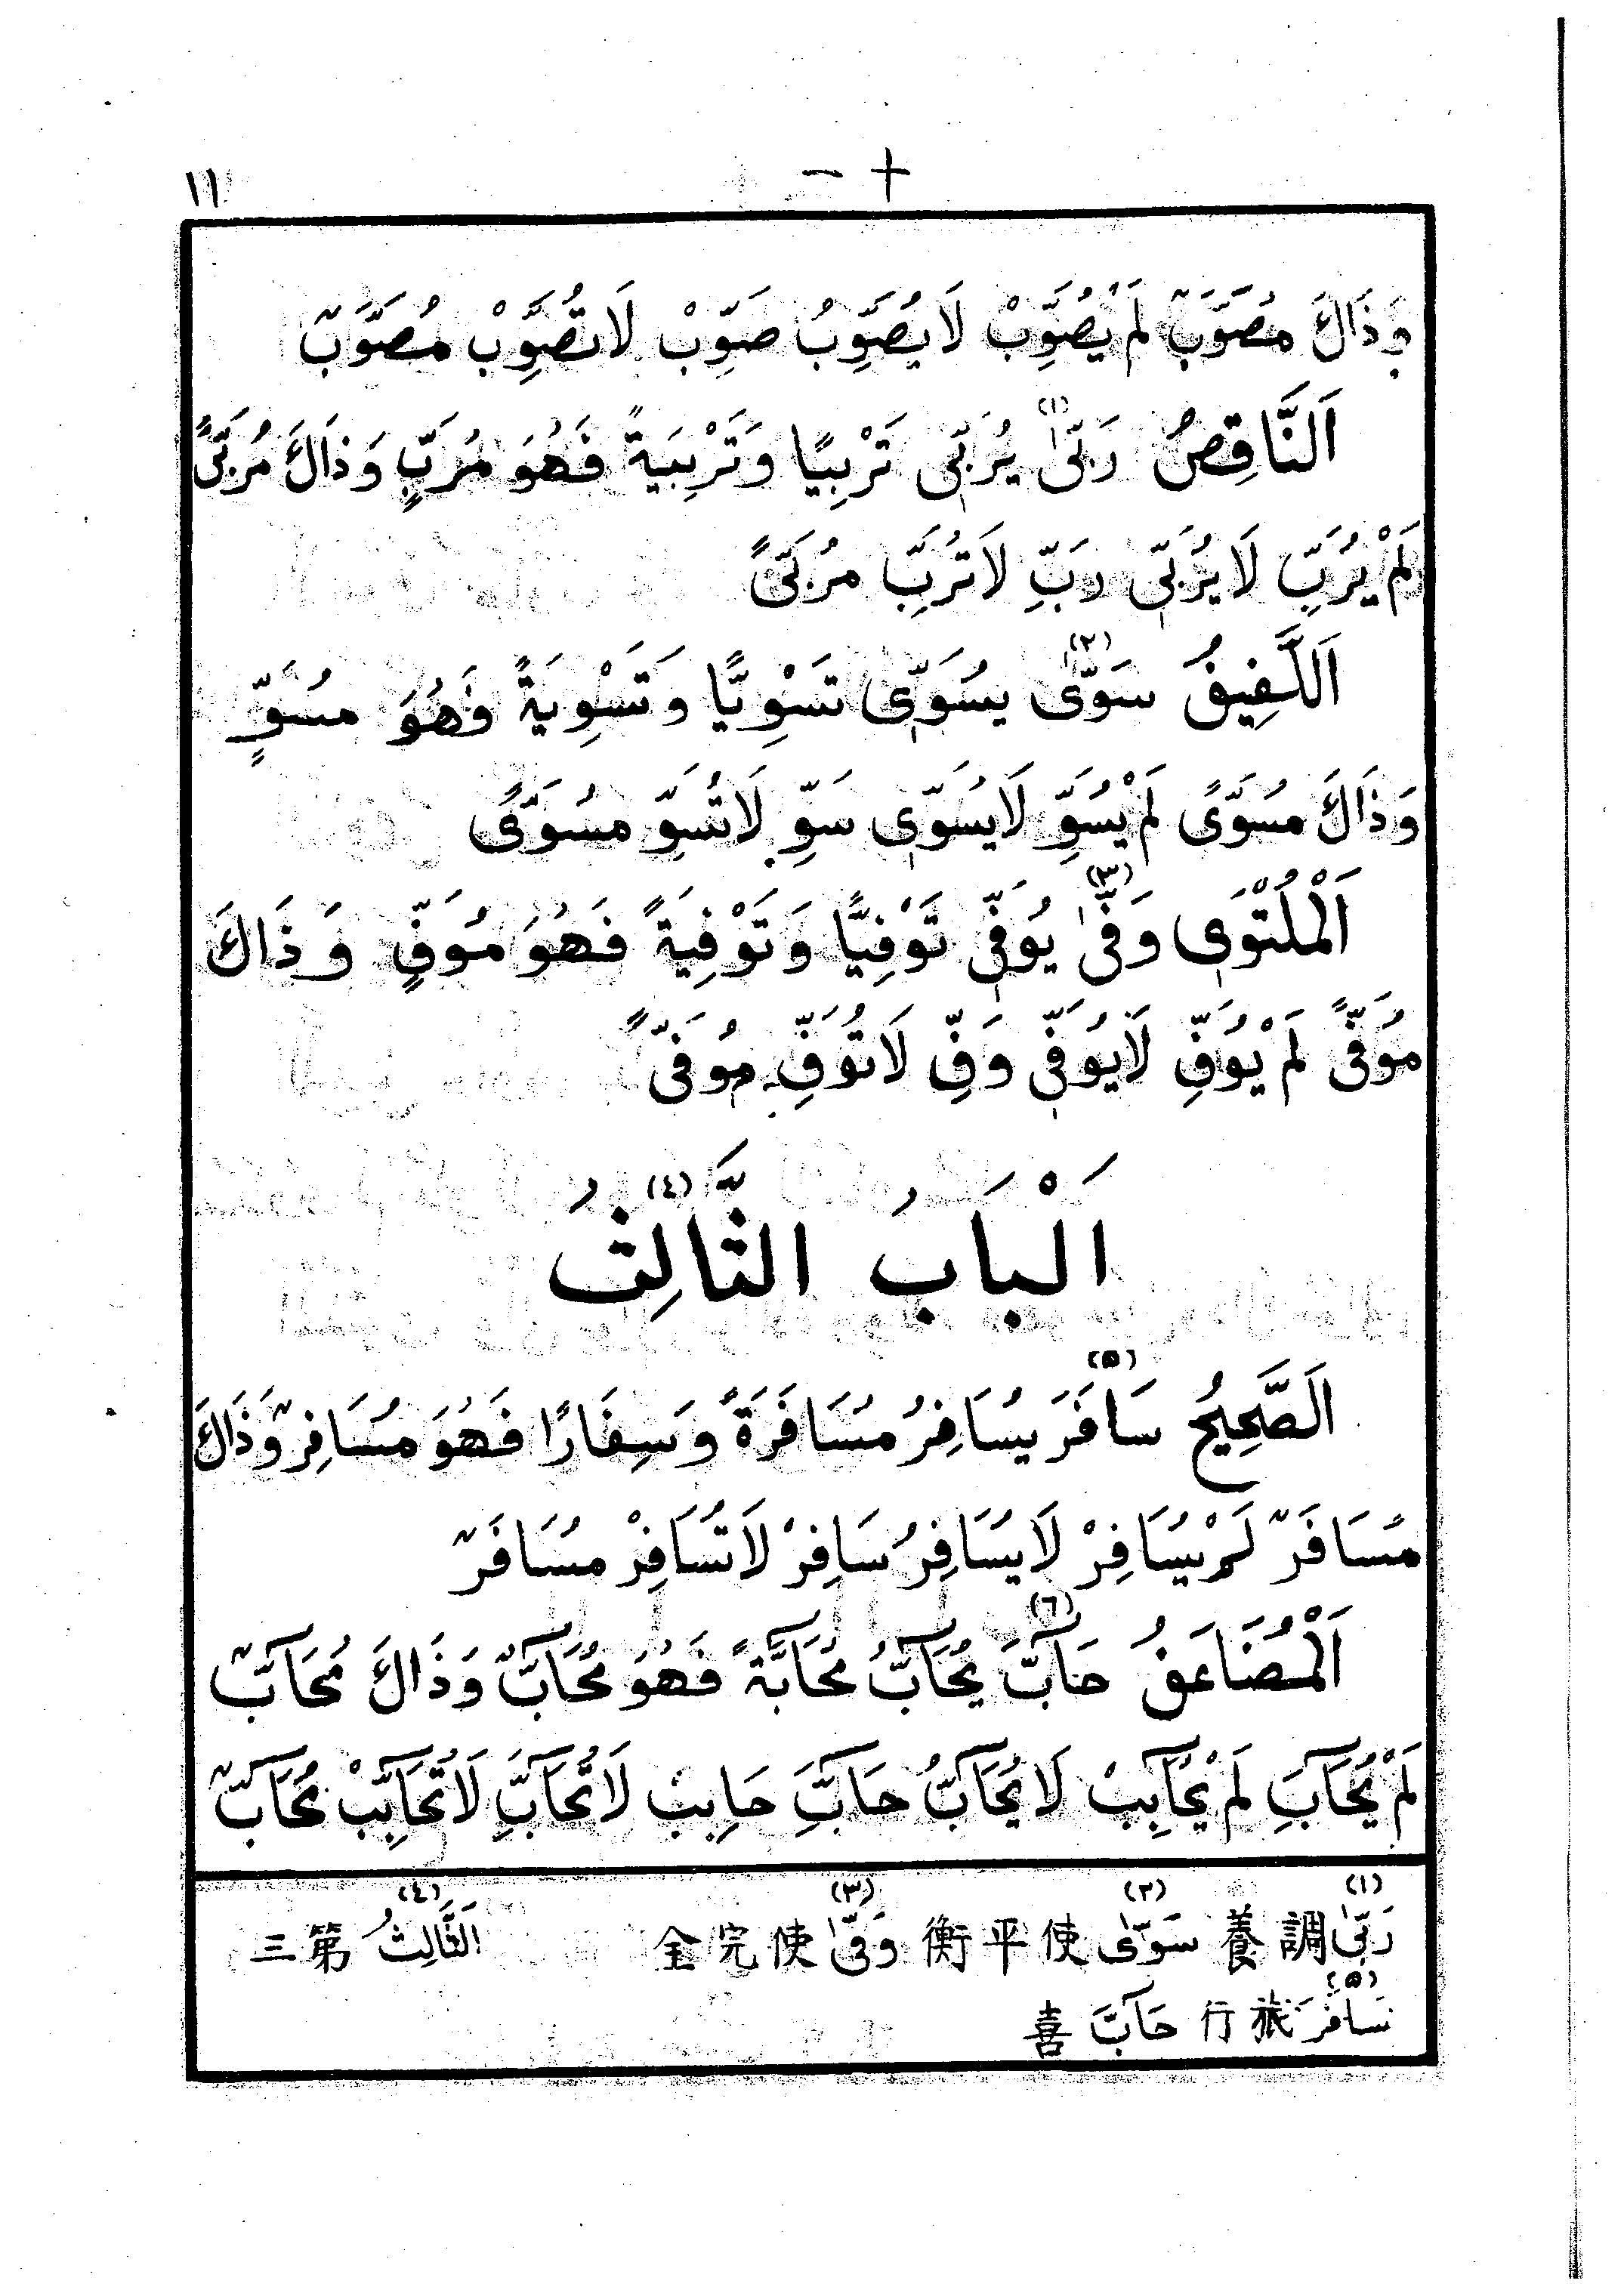 十一
١١
وَذَاكَ مُصَوَّبٌ لَمْ يُصَوِّبْ لَا يُصَوِّبُ صَوِّبْ لَا تُصَوِّبْ مُصَوَّبٌ
اَلنَّاقِصُ رَبّٰى (١) يُرَبِّى تَرْبِيًا وَتَرْبِيَةً فَهُوَ مُرَبٍّ وَذَاكَ مُرَبًّى
لَمْ يُرَبِّ لَا يُرَبِّى رَبِّ لَا تُرَبِّ مُرَبًّى
اَللَّفِيفُ سَوّٰى (٢) يُسَوِّى تَسْوِيًّا وَتَسْوِيَةً فَهُوَ مُسَوٍّ
وَذَاكَ مُسَوًّى لَمْ يُسَوِّ لَا يُسَوِّى سَوِّ لَا تُسَوِّ مُسَوًّى
اَلْمُلْتَوِى وَفّٰى (٣) يُوَفِّى تَوْفِيًّا وَتَوْفِيَةً فَهُوَ مُوَفٍّ وَذَاكَ
مُوَفًّى لَمْ يُوَفِّ لَا يُوَفِّى وَفِّ لَا تُوَفِّ مُوَفًّى
اَلْبَابُ الثَّالِثُ (٤)
اَلصَّحِيحُ سَافَرَ (٥) يُسَافِرُ مُسَافَرَةً وَسِفَارًا فَهُوَ مُسَافِرٌ وَذَاكَ
مُسَافَرٌ لَمْ يُسَافِرْ لَا يُسَافِرُ سَافِرْ لَا تُسَافِرْ مُسَافَرٌ
اَلْمُضَاعَفُ حَآبَّ (٦) يُحَآبُّ مُحَآبَّةً فَهُوَ مُحَآبٌّ وَذَاكَ مُحَآبٌّ
لَمْ يُحَآبِّ لَمْ يُحَابِبْ لَا يُحَآبُّ حَآبِّ حَابِبْ لَا تُحَآبِّ لَا تُحَابِبْ مُحَآبٌّ
(١) رَبّٰى 調養 (٢) سَوّٰى 使平衡 (٣) وَفّٰى 使完全 (٤) اَلثَّالِثُ 第三
(٥) سَافَرَ 旅行 حَآبَّ 喜